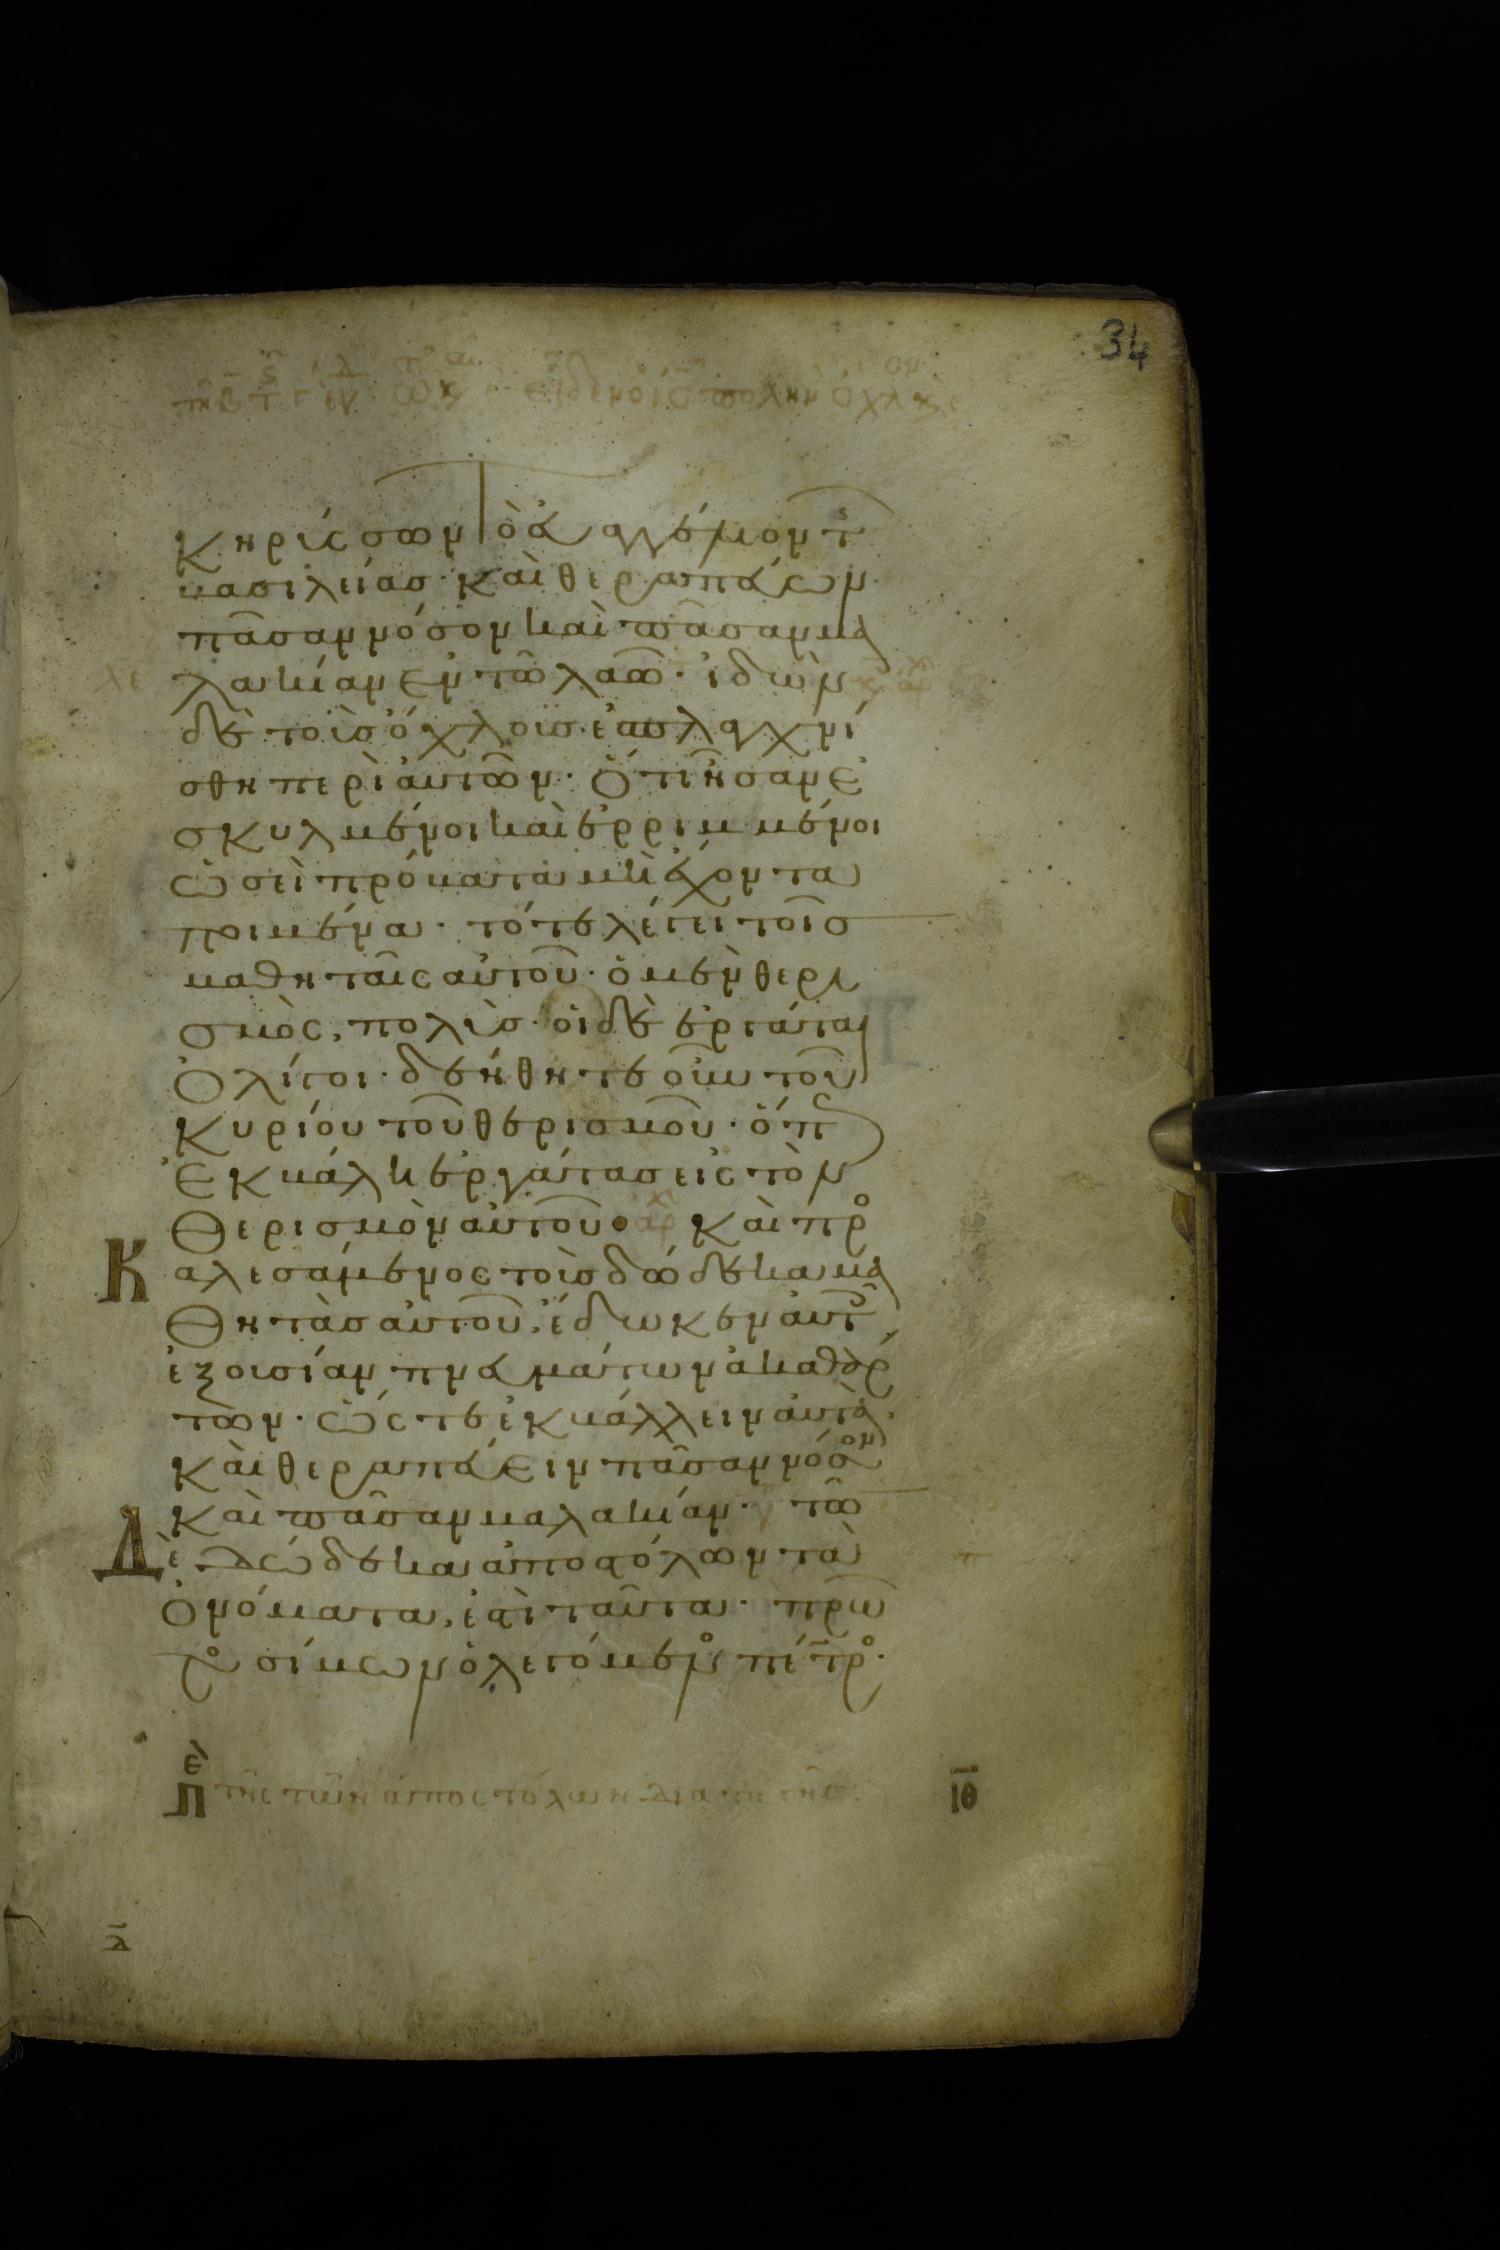 34
κηρύσσων τὸ ἐυαγγέλιον τ
βασιλείασ· καὶ θεραπέυων
πᾶσαν νόσον καὶ πᾶσαν μα
λακίαν ἐν τῶ λαῶ· ἰδὼν
δὲ τοὺσ ὄχλουσ ἐσπλαγχνί
σθη περὶ ἀυτῶν· ὅτι ἦσαν ἐ
σκυλμένοι καὶ ἐρριμμένοι
ὡσεὶ πρόβατα μὴ ἔχοντα
ποιμένα· τότε λέγει τοῖσ
μαθηταῖς αὐτοῦ· ὁ μὲν θερι
σμὸς, πολὺσ· οἱ δὲ ἐργάται
ὀλίγοι· δεήθητε οὖν τοῦ
κυρίου τοῦ θερισμοῦ· ὅπ
ἐκβάλη ἐργάτασ εἰς τὸν
θερισμὸν αὐτοῦ· καὶ προ
Καλεσάμενος τοὺσ δώδεκα μα
θητὰσ αὐτοῦ, ἔδωκεν ἀυτ
ἐξουσίαν πνευμάτων ἀκαθάρ
των· ὥςτε ἐκβάλλειν ἀυτὰ,
καὶ θεραπέυειν πᾶσαν νόσον
καὶ πᾶσαν μαλακίαν· τῶ
Δὲ δώδεκα ἀποστόλων τὰ
ὀνόματα, ἐστὶ ταῦτα· πρῶ
το σίμων ὁ λεγόμενο πέτρο·
τῆς τῶν ἀποστόλων διαταγῆς
ιθ
λ